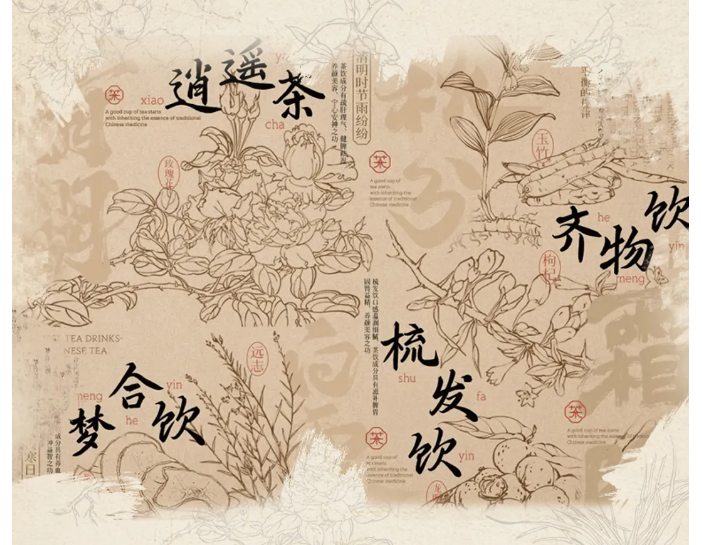 逍遥茶
xiao
yo
cha
茶
A good cup of tea starts
with inheriting the essence of traditional
Chinese medicine
茶饮成分有疏肝理气、健脾益发
养颜美容、宁心安神之功
清明时节雨纷纷
玫瑰花
茶
A good cup of
tea starts
with inheriting the
essence of traditional
Chinese medicine
玉竹
齐物饮
he
meng
yin
枸杞
梳发饮口感温润细腻，茶饮成分具有滋补脾胃
固肾益精、养颜美容之功
梳发饮
shu
fa
yin
TEA DRINKS-
NESE TEA
远志
梦合饮
meng
he
yin
寒日
霜
茶
A good cup of
tea starts
with inheriting the
essence of traditional
Chinese medicine
茶
A good cup of tea starts
with inheriting the essence of traditional
Chinese medicine